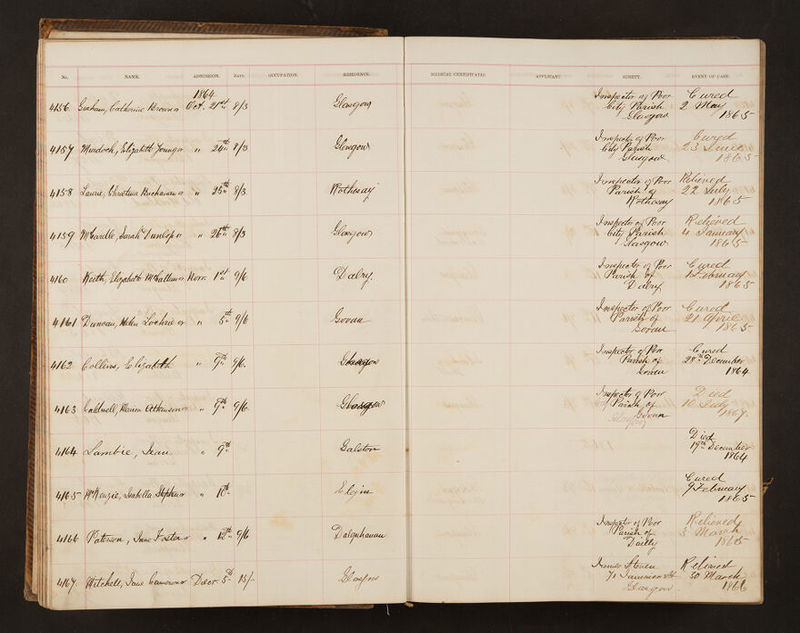 No. NAME. ADMISSION. RATE. OCCUPATION. RESIDENCE. MEDICAL CERTIFICATES. APPLICANT. SURETY. EVENT OF CASE.
1864
4156 Graham, Catherine Brown or Oct. 21st 8/3 Glasgow Inspector of Poor City Parish Glasgow Cured 2 May 1865
4157 Murdoch, Elizabeth Young or " 24th 8/3 Glasgow Inspector of Poor City Parish Glasgow Cured 23 June 1865
4158 Laurie, Christina Buchanan or " 25th 8/3 Rothesay Inspector of Poor Parish of Rothesay Relieved 22 July 1865
4159 McCardle, Sarah Dunlop or " 26th 8/3 Glasgow Inspector of Poor City Parish Glasgow Relieved 4 January 1865
4160 Keith, Elizabeth or Novr. 1st 9/6 Dalry. Inspector of Poor Parish of Dalry Cured February 1865
4161 Duncan, Helen Lochrie or " 5th 9/6 Govan Inspector of Poor Parish of Govan Cured 21 April 1865
4162 Collins, Elizabeth " 7th 9/6 Inspector of Poor Parish of Govan Cured 28th December 1864
4163 Caldwell, Atkinson or " 9th 9/6 Glasgow Inspector of Poor Parish of Govan Died 10 July 1867
4164 Lambie, Jean " 9th Galston Died 19th December 1864
4165 McKenzie, Isabella Stephen or " 10th Elgin Cured 9 February 1865
4166 Paterson, Jane Foster or " 12th 9/6 Dalquharran Inspector of Poor Parish of Dailly Relieved 3 March 1865
4167 Mitchell, Jane Cameron or Decr 5th 15/- Glasgow James Glasgow Relieved 30 March 1866